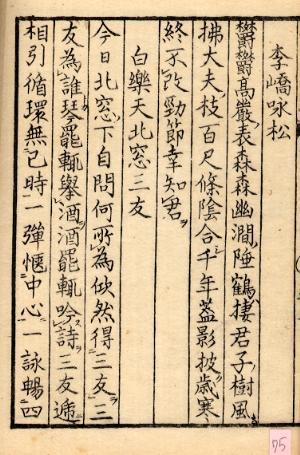 李嶠咏松
鬱鬱高巖表森森幽澗陲鶴棲君子樹風
拂大夫枝百尺條陰合千年蓋影披歲寒
終不改勁節幸知君
白樂天北窓三友
今日北窓下自問何所為欣然得三友三
友為誰琴罷輒擧酒酒罷輒吟詩三友遞
相引循環無已時一彈愜中心一詠暢四
75